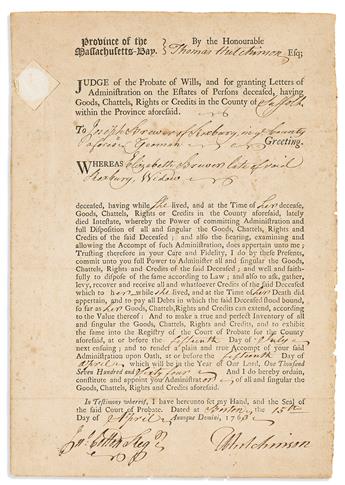 Province of the
Massachusetts-Bay.
By the Honourable
Thomas Hutchinson Esq;
JUDGE of the Probate of Wills, and for granting Letters of
Administration on the Estates of Persons deceased, having
Goods, Chattels, Rights or Credits in the County of Suffolk
within the Province aforesaid.
To Joseph Brewer of Roxbury, in ye County
aforesaid Yeoman Greeting.
WHEREAS Elizabeth Brewer late of said
Roxbury, Widow
deceased, having while she lived, and at the Time of her decease,
Goods, Chattels, Rights or Credits in the County aforesaid, lately
died Intestate, whereby the Power of committing Administration and
full Disposition of all and singular the Goods, Chattels, Rights and
Credits of the said Deceased; and also the hearing, examining and
allowing the Accompt of such Administration, does appertain unto me;
Trusting therefore in your Care and Fidelity, I do by these Presents,
commit unto you full Power to Administer all and singular the Goods,
Chattels, Rights and Credits of the said Deceased; and well and faith-
fully to dispose of the same according to Law; and also to ask, gather,
levy, recover and receive all and whatsoever Credits of the said Deceased
which to her, while she lived, and at the Time of her Death did
appertain, and to pay all Debts in which the said Deceased stood bound,
so far as her Goods, Chattels, Rights and Credits can extend, according
to the Value thereof: And to make a true and perfect Inventory of all
and singular the Goods, Chattels, Rights and Credits, and to exhibit
the same into the Registry of the Court of Probate for the County
aforesaid, at or before the fifteenth Day of July
next ensuing; and to render a plain and true Accompt of your said
Administration upon Oath, at or before the fifteenth Day of
April which will be in the Year of Our Lord, One Thousand
Seven Hundred and Sixty four And I do hereby ordain,
constitute and appoint you Administrator of all and singular
the Goods, Chattels, Rights and Credits aforesaid.
In Testimony whereof, I have hereunto set my Hand, and the Seal of
the said Court of Probate. Dated at Boston the 15th
Day of April Annoque Domini, 1763
Jn Cotton Regr
T Hutchinson